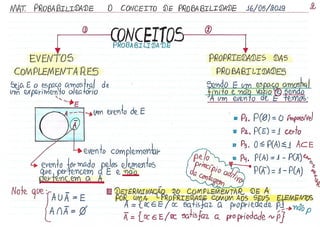 MAT. PROBABILIDADE O CONCEITO DE PROBABILIDADE 16/05/2019 2
① CONCEITOS ②
PROBABILIDADE
EVENTOS
COMPLEMENTARES
Seja E o espaço amostral de
um experimento aleatório
E
A
um evento de E
Ā
evento complementar
evento formado pelos elementos
que pertencem a E e não
pertencem a A
Note que:
A ∪ Ā = E
A ∩ Ā = Ø
PROPRIEDADES DAS
PROBABILIDADES
Sendo E um espaço amostral
finito e não vazio e sendo
A um evento de E temos:
P1. P(Ø) = 0 Impossível
P2. P(E) = 1 certo
P3. 0 ≤ P(A) ≤ 1 A ⊂ E
P4. P(A) = 1 - P(Ā)
P(Ā) = 1 - P(A)
pelo
princípio aditivo
da contagem
DETERMINAÇÃO DO COMPLEMENTAR DE A
POR UMA PROPRIEDADE COMUM AOS SEUS ELEMENTOS
A = {x ∈ E / x satisfaz a propriedade p}
não p
Ā = {x ∈ E / x satisfaz a propriedade ~p}